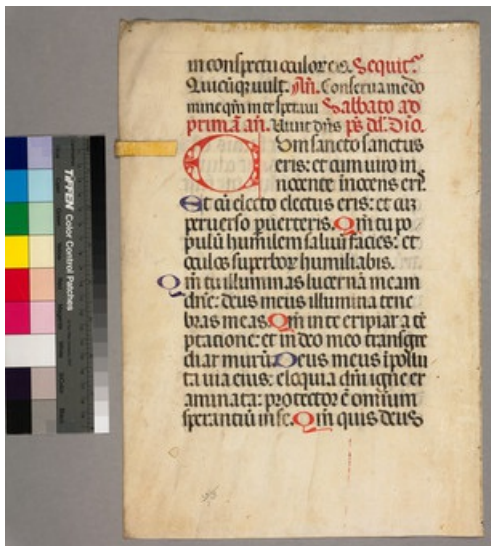 in conspectu oculor eiꝰ. Sequit᷑
Quicūqȝ vult. Añ. Conserua me do
mine qm̄ in te speraui Sabbato ad
primā añ. Viuit dn̄s ps̄ dd̄. Dio.
Cum sancto sanctus
eris: et cum uiro in
nocente īnocens eris
Et cū electo electus eris: et cuȝ
peruerso puerteris. Qm̄ tu po
pulū humilem saluū facies: et
oculos superboꝝ humiliabis.
Qm̄ tu illuminas lucernā meam
dn̄e: deus meus illumina tene
bras meas. Qm̄ in te eripiar a tē
ptacione: et in deo meo transgre
diar murū. Deus meus īpollu
ta uia eius: eloquia dn̄i igne ex
aminata: protector ē omnium
sperantiū in se. Qm̄ quis deus
TIFFEN Color Control Patches